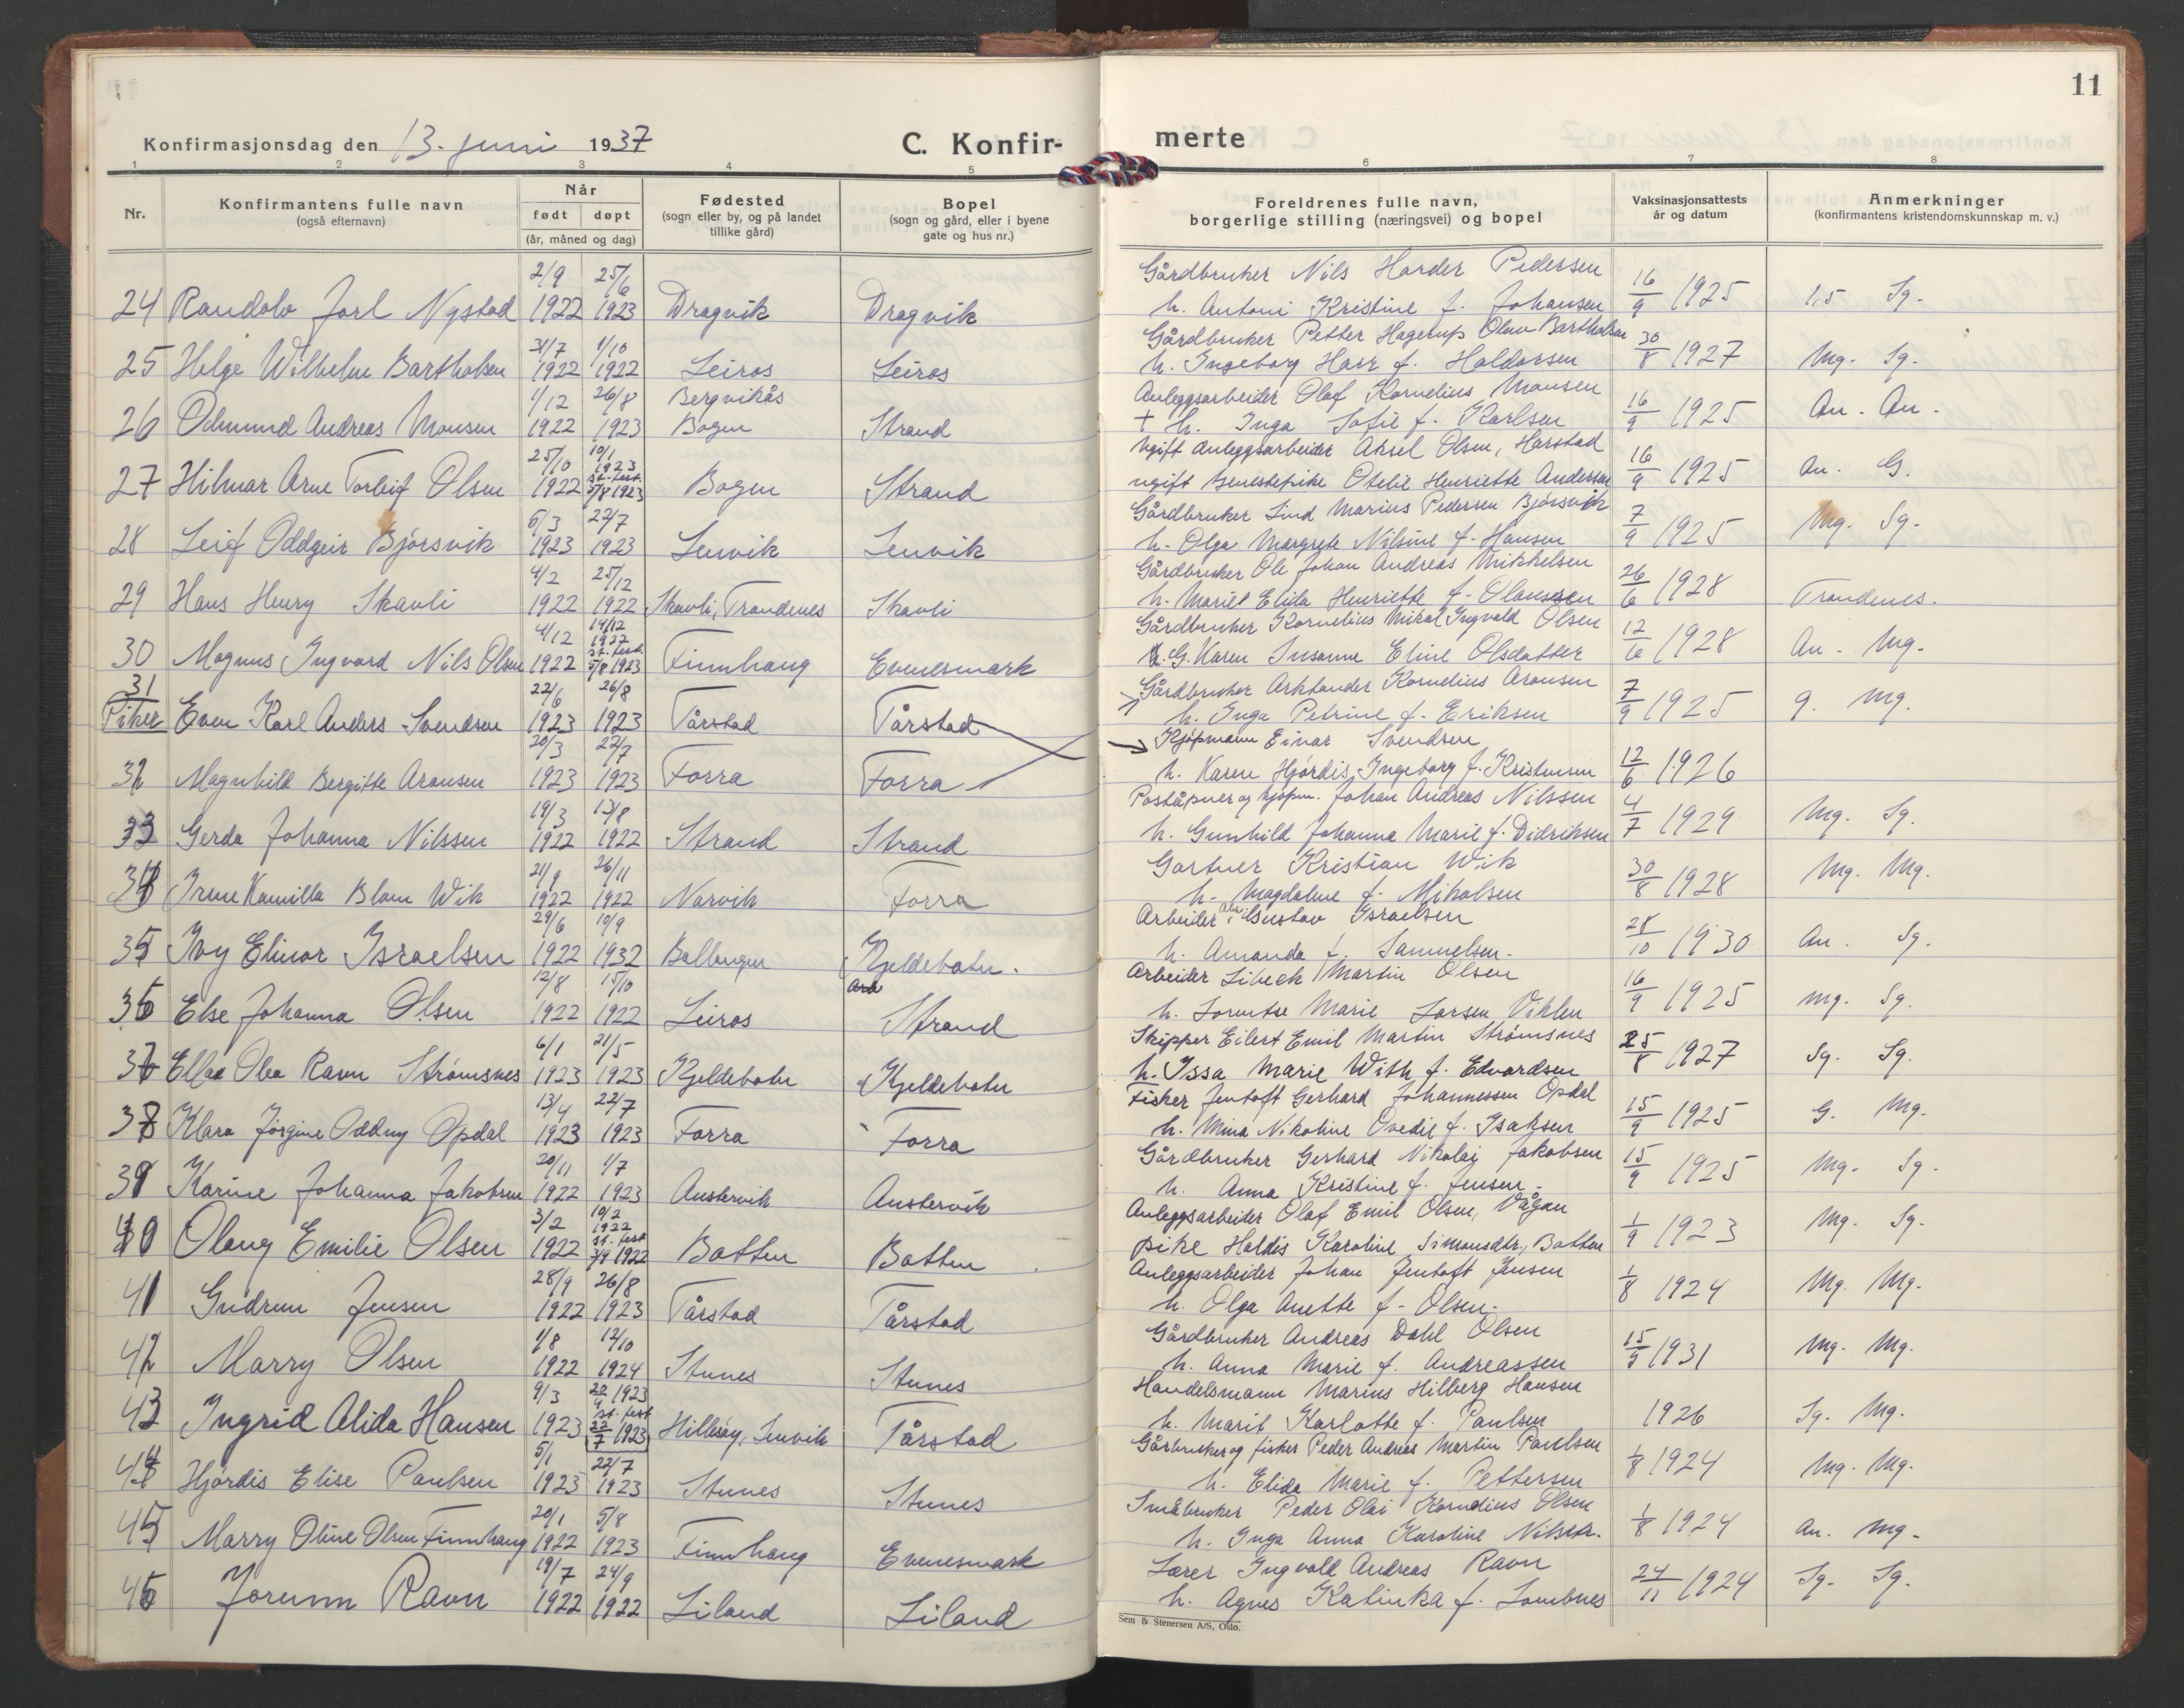 11
Konfirmasjonsdag den 13. juni 1937
C. Konfir-
merte
1 2 3 4 5 6 7 8
Nr.
Konfirmantens fulle navn
(også efternavn)
Når
født døpt
(år, måned og dag)
Fødested
(sogn eller by, og på landet
tillike gård)
Bopel
(sogn og gård, eller i byene
gate og hus nr.)
Foreldrenes fulle navn,
borgerlige stilling (næringsvei) og bopel
Vaksinasjonsattests
år og datum
Anmerkninger
(konfirmantens kristendomskunnskap m. v.)
2/9 25/6 Gårdbruker Nils Harder Pedersen
24 Randolv Jarl Nystad 1922 1923 Dragvik Dragvik h. Antoni Kristine f. Johansen 16/9 1925 1,5 Sg.
31/7 1/10 Gårdbruker Petter Hagerup Olsen Bartholsen
25 Helge Wilhelm Bartholsen 1922 1922 Leiros Leiros h. Ingeborg Harr f. Haldorsen 30/8 1927 Mg. Sg.
1/12 26/8 Bergvikås Anleggsarbeider Olaf Kornelius Monsen
26 Odmund Andreas Monsen 1922 1923 Bogen Strand + h. Inga Sofie f. Karlsen 16/9 1925 An. An.
25/10 10/1 1923 ugift Anleggsarbeider Aksel Olsen, Harstad
27 Hilmar Arne Torleif Olsen 1922 st. fest. 5/8 1923 Bogen Strand ugift tjenestepike Otelie Henriette Andersen 16/9 1925 An. G.
5/3 22/7 Gårdbruker Lind Marius Pedersen Bjørsvik
28 Leif Oddgeir Bjørsvik 1923 1923 Lenvik Lenvik h. Olga Margrete Nilsine f. Hansen 7/9 1925 Mg. Sg.
4/2 25/12 Gårdbruker Ole Johan Andreas Mikkelsen
29 Hans Henry Skavli 1922 1922 Skavli, Trondenes Skavli h. Mariel Elida Henriette f. Olaussen 26/6 1928 Trondenes.
4/12 14/12 1922 Gårdbruker Kornelius Mikal Ingvald Olsen
30 Magnus Ingvard Nils Olsen 1922 st. fest. 5/8 1923 Finnhaug Evenesmark h. G. Karen Susanne Eline Olsdatter 12/6 1928 An. Mg.
31 22/6 26/8 Gårdbruker Arktander Kornelius Aronsen
Piker Even Karl Anders Svendsen 1923 1923 Tårstad Tårstad h. Inga Petrine f. Eriksen 7/9 1925 g. Mg.
20/3 22/7 Kjøpmann Einar Svendsen
32 Magnhild Bergitte Aronsen 1923 1923 Forra Forra h. Karen Hjørdis Ingeborg f. Kristensen 12/6 1926
19/3 13/8 Poståpner og kjøpm. Johan Andreas Nilssen
33 Gerda Johanna Nilssen 1922 1922 Strand Strand h. Gunhild Johanna Marie f. Didriksen 4/7 1929 Mg. Sg.
21/9 26/11 Gartner Kristian Wik
34 Irene Kamilla Blom Wik 1922 1922 Narvik Forra h. Magdalene f. Mikalsen 30/8 1928 Mg. Mg.
29/6 10/9 Arbeider Gustav Israelsen
35 Ivy Elinor Israelsen 1922 1932 Ballangen Kjeldebotn. h. Amanda f. Samuelsen. 28/10 1930 An. Sg.
12/8 15/10 Arbeider Libeck Martin Olsen
36 Else Johanna Olsen 1922 1922 Leiros Strand h. Lorentse Marie Larsen Viklen 16/9 1925 mg. Sg.
6/1 21/5 Skipper Eilert Emil Martin Strømsnes
37 Ellaa Olea Ravn Strømsnes 1923 1923 Kjeldebotn Kjeldebotn h. Issa Marie With f. Edvardsen 25/8 1927 Sg. Sg.
13/4 22/7 Fisker Jentoft Gerhard Johannessen Opdal
38 Klara Jørgine Oddny Opdal 1923 1923 Forra Forra h. Mina Nikoline Ovedie f. Isaksen 15/9 1925 G. Mg.
20/11 1/7 Gårdbruker Gerhard Nikolai Jakobsen
39 Karine Johanna Jakobsen 1922 1923 Austervik Austervik h. Anna Kristine f. Jensen. 15/9 1925 Mg. Sg.
3/2 10/2 1922 Anleggsarbeider Olaf Emil Olsen, Vågan
40 Olaug Emilie Olsen 1922 st. fest 3/9 1922 Botten Botten pike Haldis Karoline Simonsdtr., Botten 1/9 1923 Mg. Sg.
28/9 26/8 Anleggsarbeider Johan Jentoft Jensen
41 Gudrun Jensen 1922 1923 Tårstad Tårstad h. Olga Anette f. Olsen. 1/8 1924 Mg. Mg.
1/8 12/10 Gårdbruker Andreas Dahl Olsen
42 Marry Olsen 1922 1924 Stunes Stunes h. Anna Marie f. Andreassen 15/5 1931 Mg. Mg.
9/3 22/4 1923 Handelsmann Marius Hilberg Hansen
43 Ingrid Alida Hansen 1923 st. fest 22/7 1923 Hillesøy, Lenvik Tårstad h. Marit Karlotte f. Paulsen 1926 Sg. Mg.
5/1 22/7 Gårbruker og fisker Peder Andreas Martin Paulsen
44 Hjørdis Elise Paulsen 1923 1923 Stunes Stunes h. Elida Marie f. Pettersen 1/8 1924 Mg. Mg.
20/1 5/8 Småbruker Peder Olai Kornelius Olsen
45 Marry Oline Olsen Finnhaug 1922 1923 Finnhaug Evenesmark h. Inga Anna Karoline Nilsstr. 1/8 1924 An. Mg.
19/7 24/9 Lærer Ingvald Andreas Ravn
46 Jorunn Ravn 1922 1922 Liland Liland h. Agnes Katinka f. Sombnes 24/11 1924 Sg. Sg.
Sem & Stenersen A/S, Oslo.